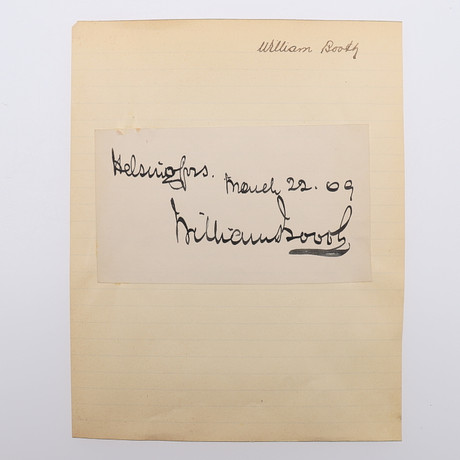 William Booth
Helsingfors. March 22. 09
William Booth